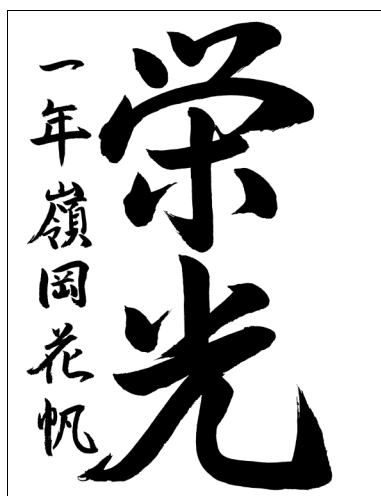 栄光
一年嶺岡花帆